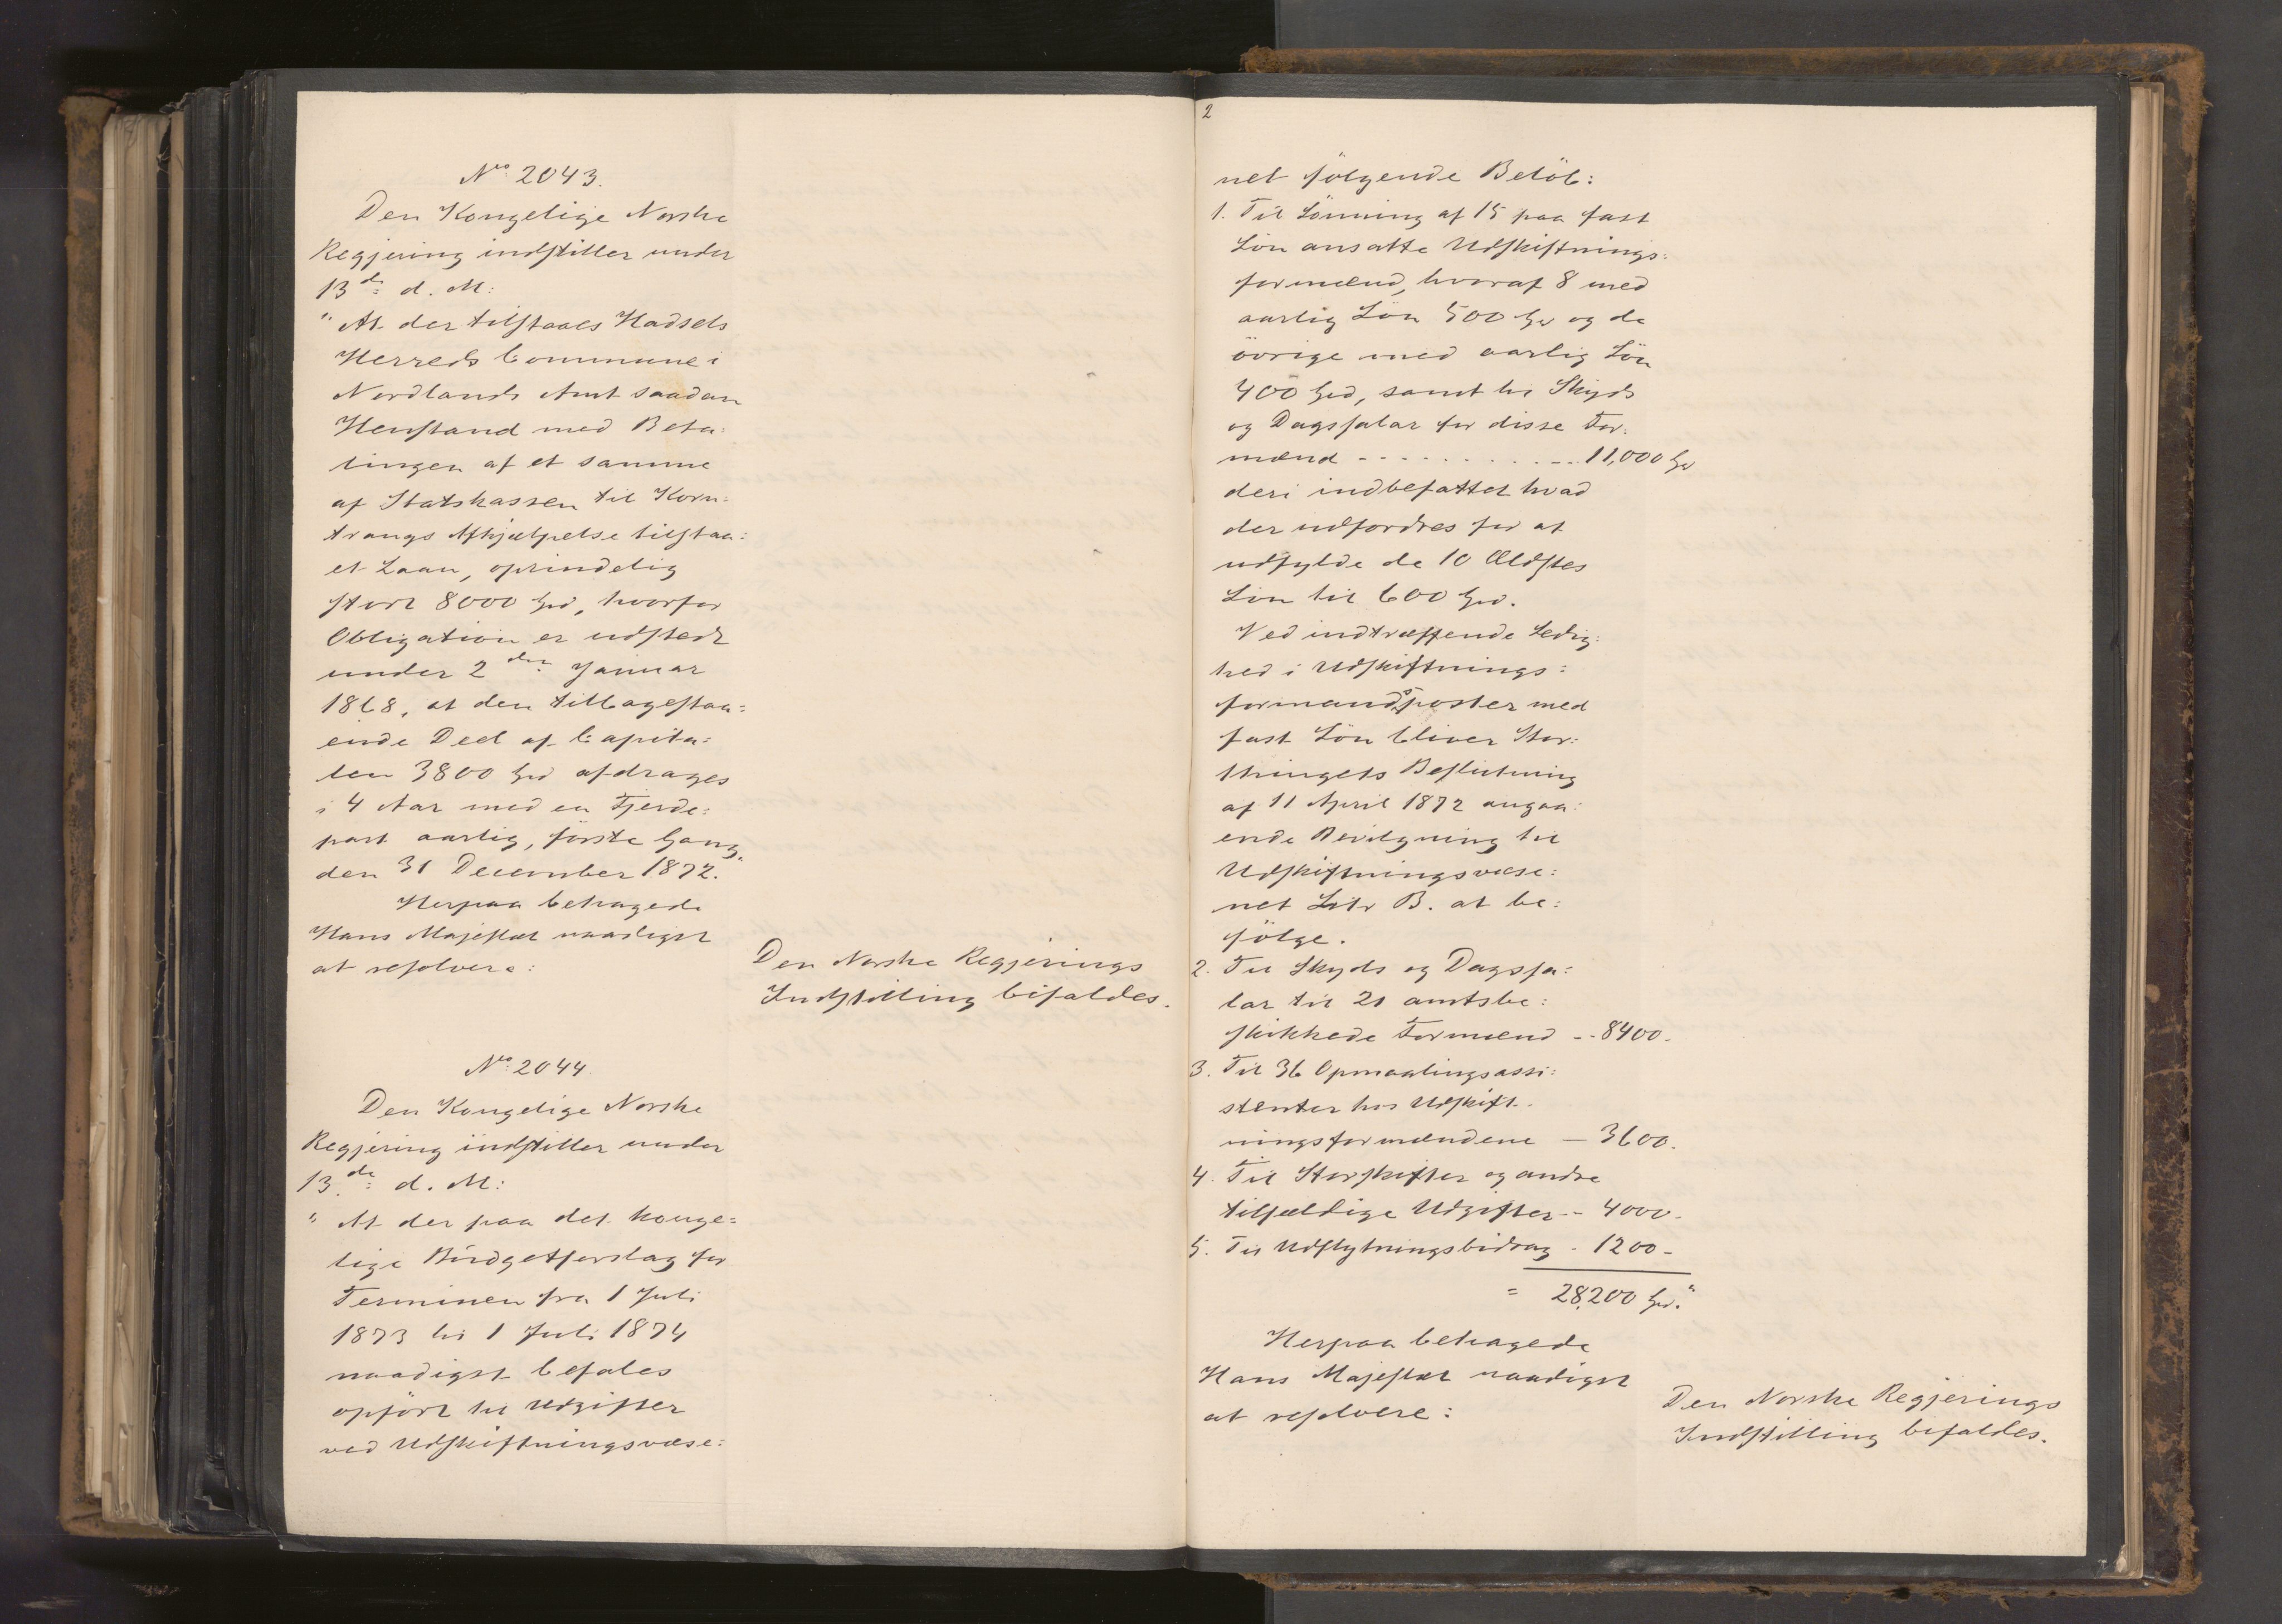 No 2043.
Den Kongelige Norske
Regjering indstiller under
13de d. M:
"At der tilstaaes Hadsels
Herreds Commune i
Nordlands Amt saadan
Henstand med Beta=
lingen af et samme
af Statskassen til Korn=
trangs Afhjælpelse tilstaa=
et Laan, oprindelig
stort 8000 Spd, hvorfor
Obligation er udstedt
under 2den Januar
1868, at den tilbagestaa=
ende Deel af Capita=
len 3800 Spd afdrages
i 4 Aar med en Fjerde=
part aarlig, første Gang
den 31 December 1872."
Herpaa behagede
Hans Majestæt naadigst
at resolvere:
Den Norske Regjerings
Indstilling bifaldes.
No 2044.
Den Kongelige Norske
Regjering indstiller under
13de d. M:
"At der paa det konge=
lige Budgetforslag for
Terminen fra 1 Juli
1873 til 1 Juli 1874
naadigst befales
opført til Udgifter
ved Udskiftningsvæse=
2
net følgende Beløb:
1. Til Lønning af 15 paa fast
Løn ansatte Udskiftnings=
formænd, hvoraf 8 med
aarlig Løn 500 Spd og de
øvrige med aarlig Løn
400 Spd, samt til Skyds
og Dagssalar for disse For=
mænd - - - - - - - - - - 11,000 Spd
deri indbefattet hvad
der udfordres for at
udfylde de 10 Ældstes
Løn til 600 Spd.
Ved indtræffende Ledig=
hed i Udskiftnings=
formandsposter med
fast Løn bliver Stor=
thingets Beslutning
af 11 April 1872 angaa=
ende Bevilgning til
Udskiftningsvæse=
net Litr B. at be=
følge.
2. Til Skyds og Dagssa=
lar til 21 amtsbe=
skikkede Formænd -- 8400.
3. Til 36 Opmaalingsassi=
stenter hos Udskift=
ningsformændene - 3600.
4. Til Storskifter og andre
tilfældige Udgifter -- 4000.
5. Til Udflytningsbidrag - 1200 -
= 28,200 Spd."
Herpaa behagede
Hans Majestæt naadigst
at resolvere:
Den Norske Regjerings
Indstilling bifaldes.